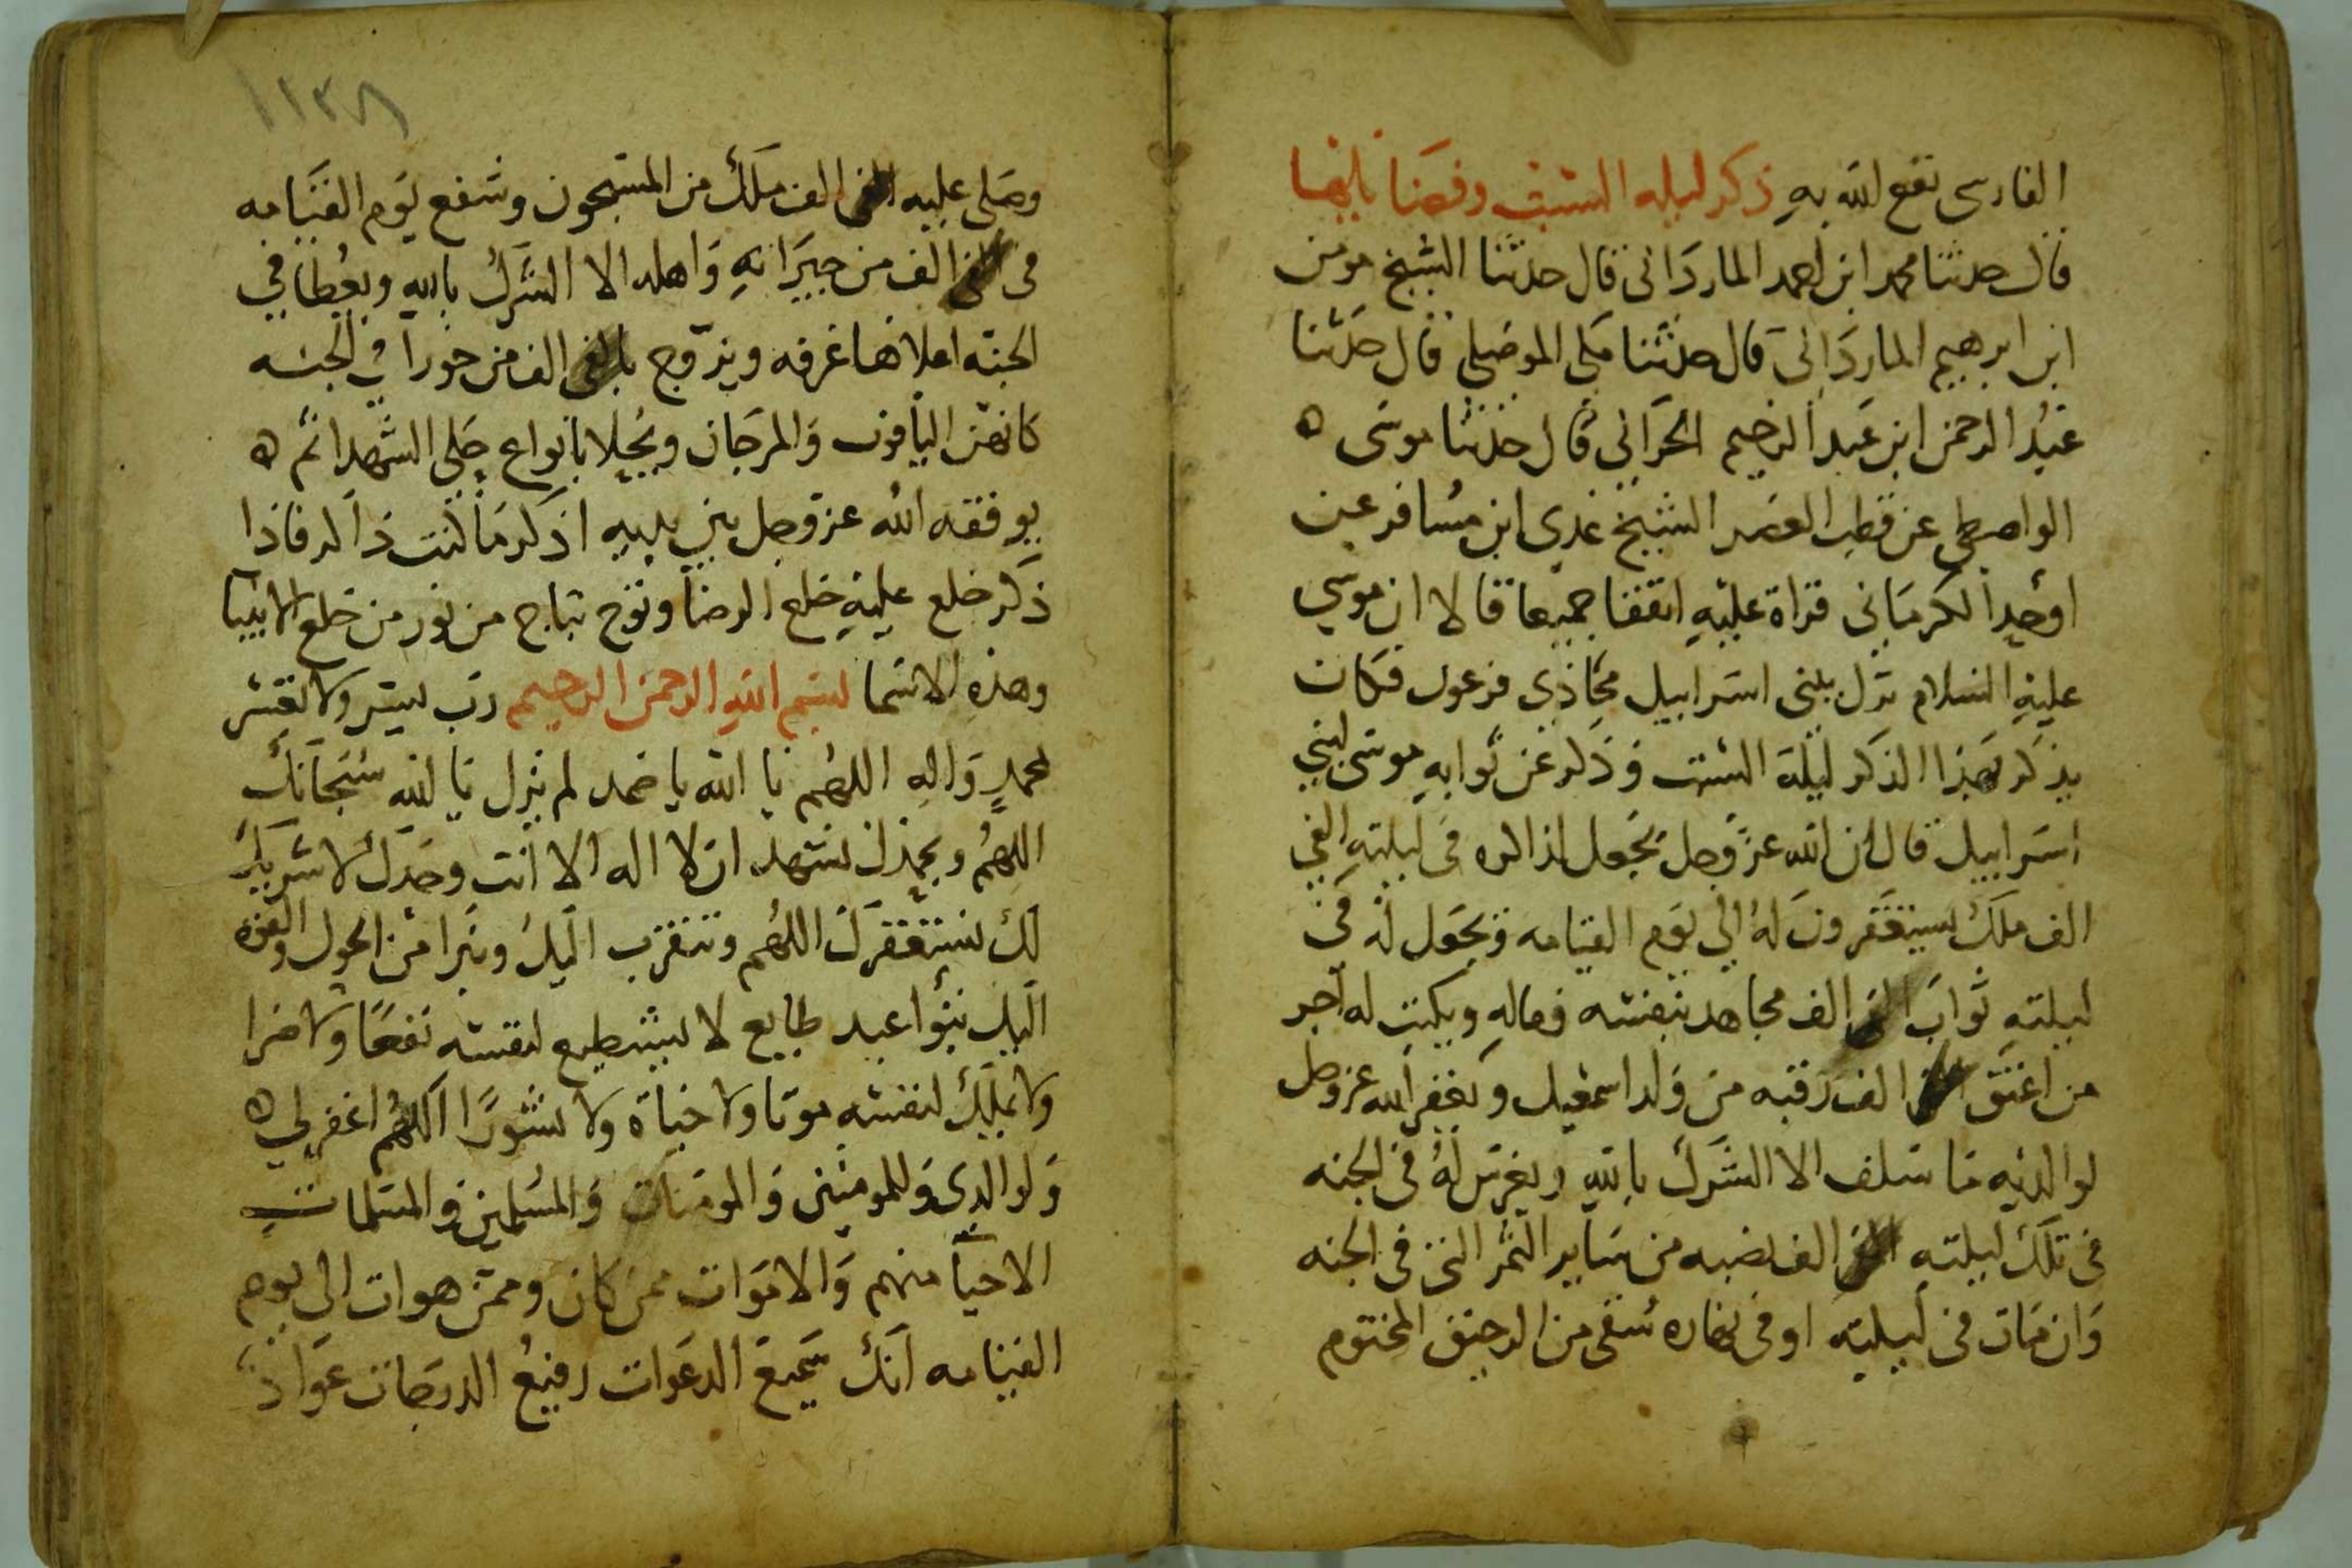 الفارسى نفع الله به ذكر ليله السبت وفضايلها
قال حدثنا محمد ابن احمد الماردانى قال حدثنا الشيخ مومن
ابن ابرهيم الماردانى قال حدثنا مكي الموصلي قال حدثنا
عبد الرحمن ابن عبد الرحيم الحراني قال حدثنا موسى ه
الواصطي عن قطب العصر الشيخ عدي ابن مسافر عن
اوحد الكرماني قراة عليه اتفقا جميعا قالا ان موسي
عليه السلام نزل ببنى اسراييل محاذي فرعون فكان
يذكر بهذا الذكر ليلة السبت وذكر عن ثوابه موسى لبني
اسراييل قال ان الله عز وجل يجعل لذاكره في ليلته الفي
الف ملك يستغفرون له الي يوم القيامه ويجعل له في
ليلته ثواب الف مجاهد بنفسه وماله ويكتب له اجر
من اعتق الف رقبه من ولد اسمعيل ويغفر الله عز وجل
لوالديه ما سلف الا الشرك بالله ويغرس له في الجنه
في تلك ليلته الف نصبه من ساير الثمر التى في الجنه
وان مات في ليلته او في نهاره سقى من الرحيق المختوم
١١٣٨
وصلى عليه الف ملك من المسبحون وشفع يوم القيامه
فى الف من جيرانه واهله الا الشرك بالله ويعطا في
الجنه اعلاها غرفه ويزوج بالفى الف من حورا في الجنه
كانهن الياقوت والمرجان ويحلا بانواع حلي الشهدا ثم ه
يوقفه الله عز وجل بين يديه اذكر ما كنت ذاكر فاذا
ذكر خلع عليه خلع الرضا وتوج بتاج من نور من خلع الانبيا
وهذه الاسما بسم الله الرحمن الرحيم رب يسر ولا تعسر
محمد واله اللهم يا الله يا صمد لم يزل يا الله سبحانك
اللهم وبحمدك نشهد ان لا اله الا انت وحدك لا شريك
لك نستغفرك اللهم ونتقرب اليك ونبرا من الحول والقوه
اليك نبؤا عبد طايع لا يستطيع لنفسه نفعا ولا ضرا
ولا يملك لنفسه موتا ولا حياة ولا نشورا اللهم اغفر لي ه
ولوالدى وللمومنين والمومنات والمسلمين والمسلمات
الاحيآ منهم والاموات ممن كان وممن هو ات الى يوم
القيامه انك سميع الدعوات رفيع الدرجات عواد